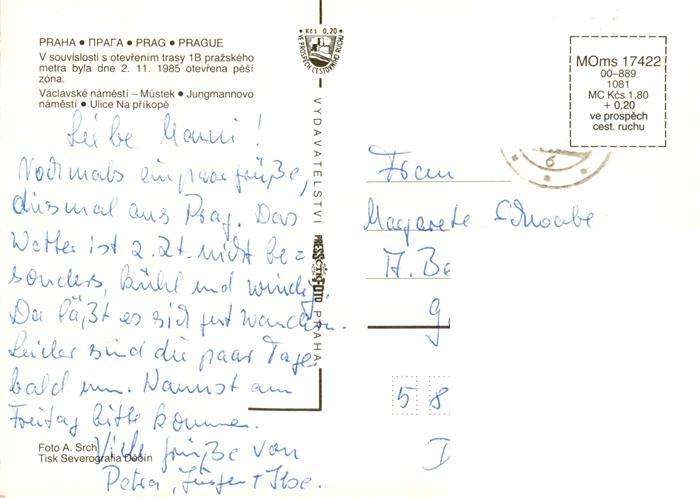 PRAHA ● ПРАГА ● PRAG ● PRAGUE
V souvislosti s otevřením trasy 1B pražského
metra byla dne 2. 11. 1985 otevřena pěší
zóna.
Václavské náměstí – Můstek ● Jungmannovo
náměstí ● Ulice Na příkopě
Liebe Manni!
Nochmals ein paar Grüße,
diesmal aus Prag. Das
Wetter ist z. Zt. nicht be=
sonders, kühl und windig.
Da läßt es sich gut wandern.
Leider sind die paar Tage
bald um. Kannst am
Freitag bitte kommen.
Viele Grüße von
Petra, Jürgen + Ilse.
Foto A. Srch
Tisk Severografia Děčín
Kčs 0,20
VE PROSPĚCH CESTOVNÍHO RUCHU
VYDAVATELSTVÍ PRESSFOTO PRAHA
ČTK
MOms 17422
00–889
1081
MC Kčs 1,80
+ 0,20
ve prospěch
cest. ruchu
6
Frau
Margarete Schwabe
A. Be
g
5 8
D